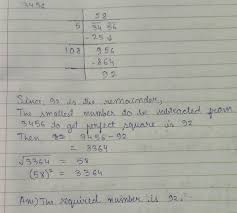 3456
58
5 34 56
-25↓
108 956
-864
92
Since, 92 is the remainder,
The smallest number to be subtracted from
3456 to get perfect square is 92
Then 3456-92
= 3364
√3364 = 58
(58)² = 3364
Ans) The required number is 92.